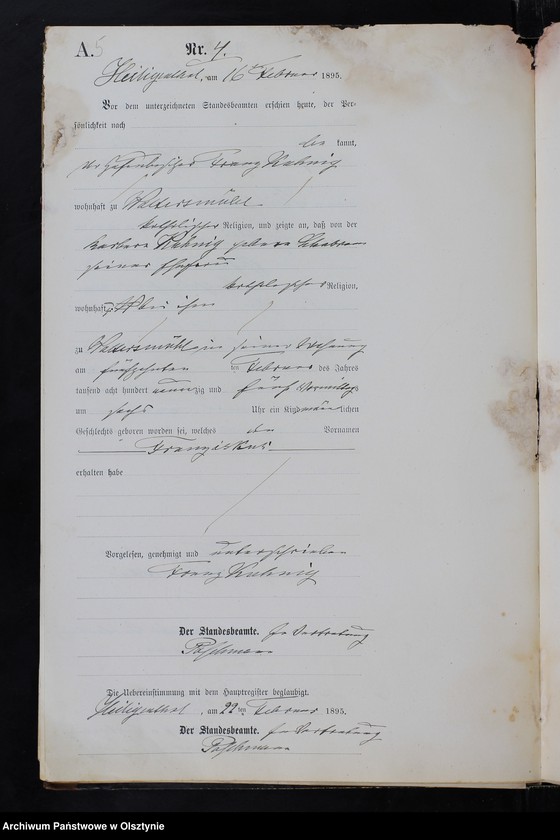 A. 5 Nr. 4.
Heiligenthal, am 16 ten Februar 1895.
Vor dem unterzeichneten Standesbeamten erschien heute, der Per-
sönlichkeit nach
be kannt,
der Hofbesitzer Franz Kuhnig
wohnhaft zu Waltersmühl
katholischer Religion, und zeigte an, daß von der
Barbara Kuhnig geborene
seiner Ehefrau
katholischer Religion,
wohnhaft bei ihm
zu Waltersmühl in seiner Wohnung
am fünfzehnten ten Februar des Jahres
tausend acht hundert neunzig und fünf Vormittags
um sechs Uhr ein Kind männlichen
Geschlechts geboren worden sei, welches den Vornamen
Franziskus
erhalten habe
Vorgelesen, genehmigt und unterschrieben
Franz Kuhnig
Der Standesbeamte. In Vertretung
Die Uebereinstimmung mit dem Hauptregister beglaubigt.
Heiligenthal, am 22 ten Februar 1895.
Der Standesbeamte. In Vertretung
Archiwum Państwowe w Olsztynie